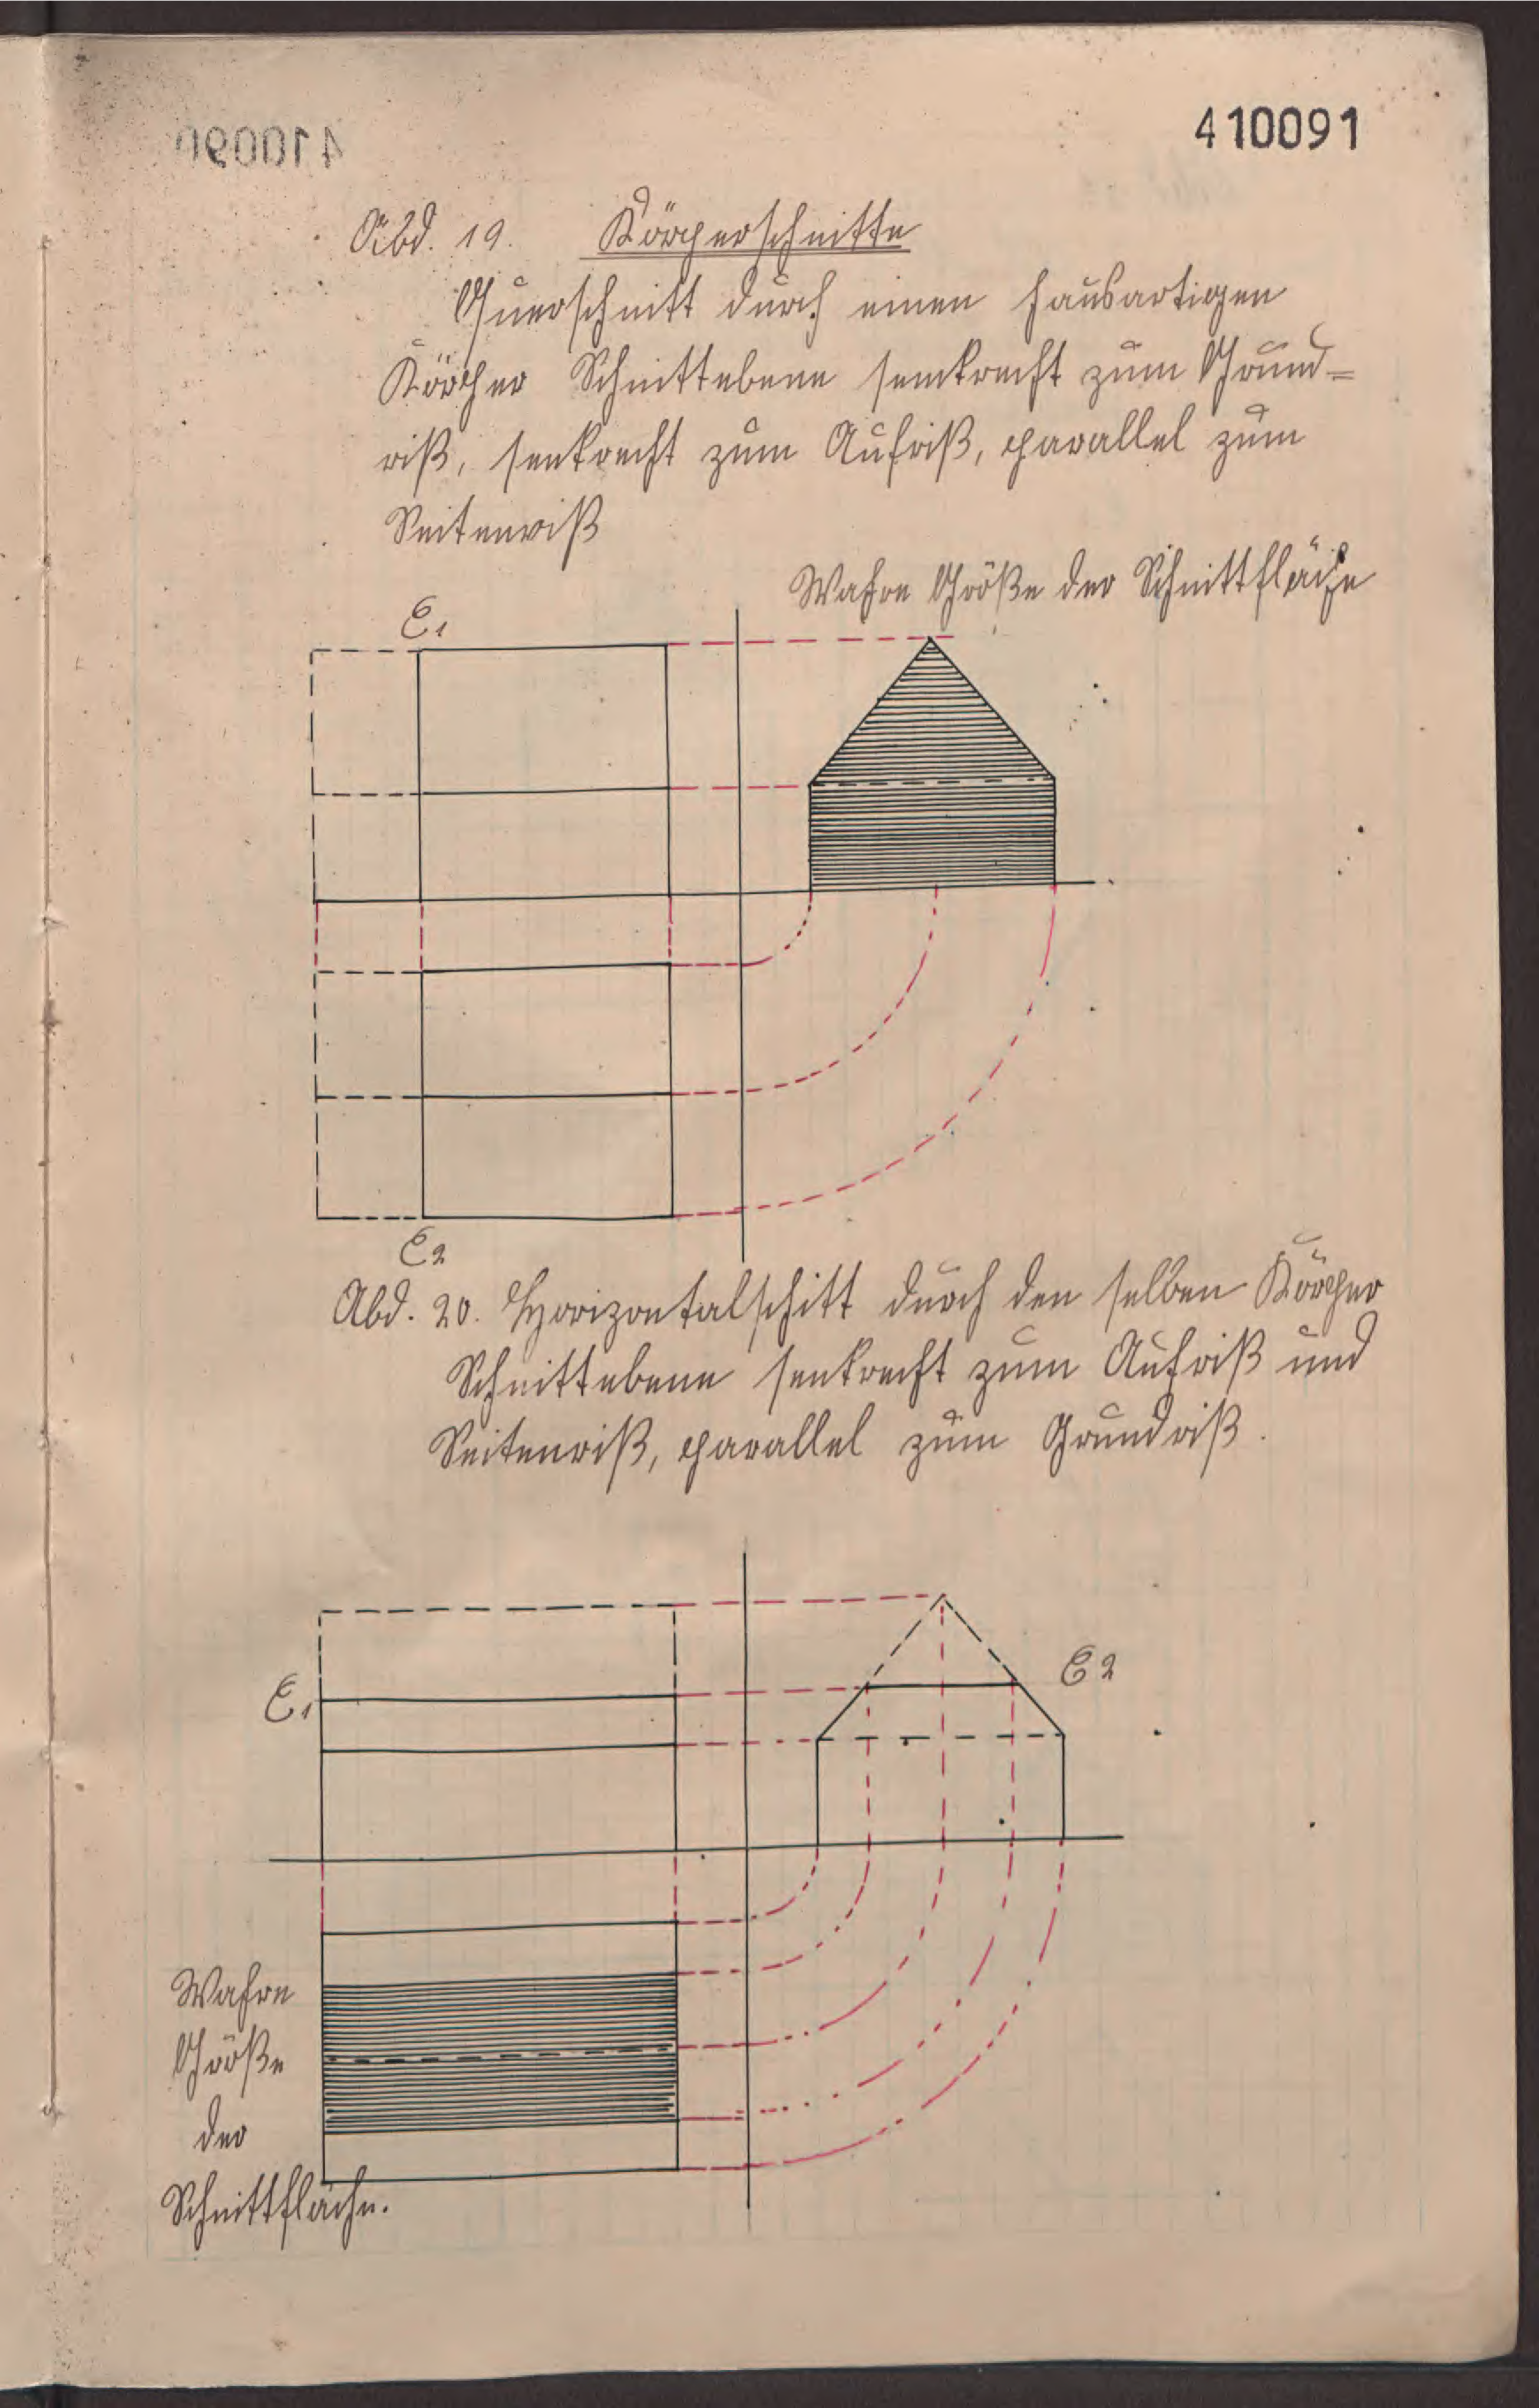 410090
410091
Abd. 19. Körperschnitte
Querschnitt durch einen hausartigen
Körper Schnittebene senkrecht zum Grund=
riß, senkrecht zum Aufriß, parallel zum
Seitenriß
Wahre Größe der Schnittfläche
E1
E2
Abd. 20. Horizontalschitt durch den selben Körper
Schnittebene senkrecht zum Aufriß und
Seitenriß, parallel zum Grundriß.
E1
E2
Wahre
Größe
der
Schnittfläche.